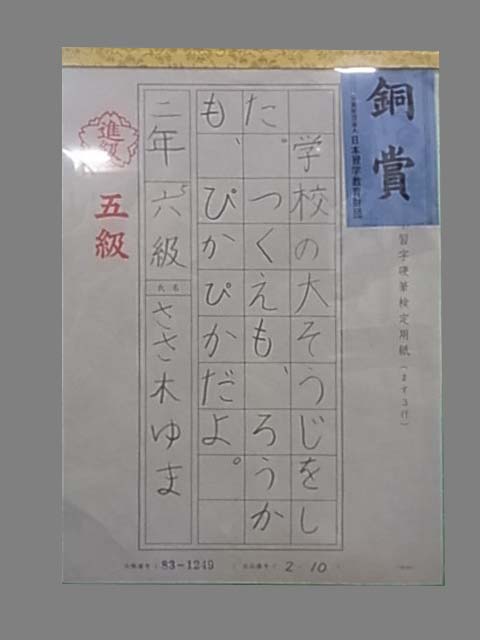 銅賞
日本習字教育財団
習字硬筆検定用紙(ます3行)
学校の大そうじをし
た。つくえも、ろうか
も、ぴかぴかだよ。
二年
六級
氏名
ささ木ゆま
進級
五級
83-1249
2-10